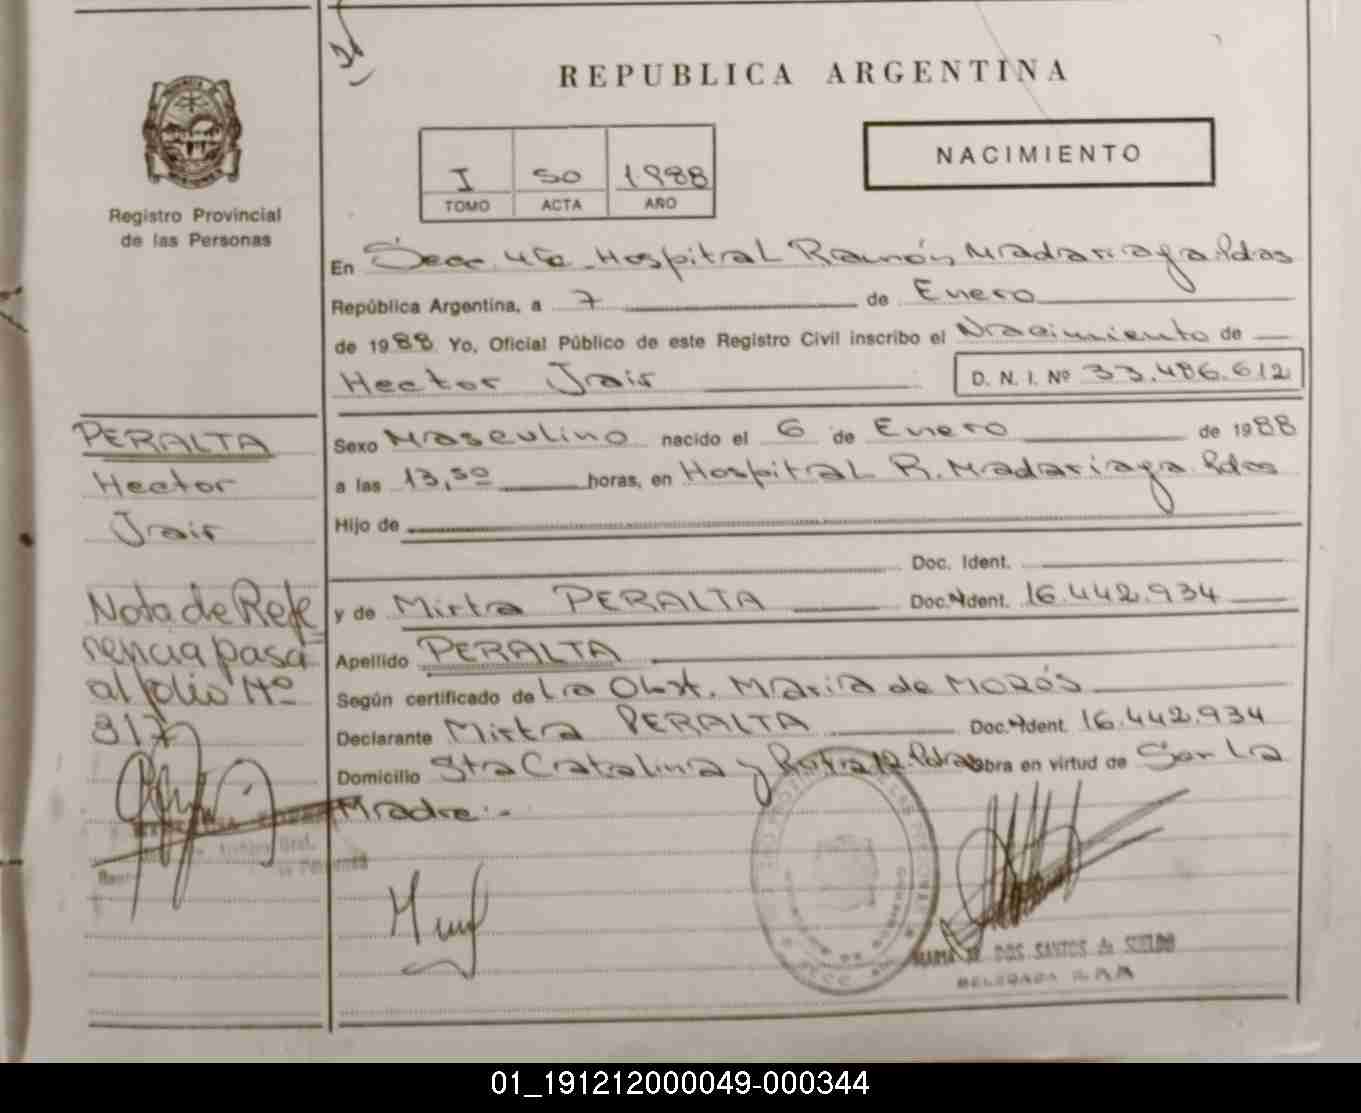 REPUBLICA ARGENTINA
NACIMIENTO
I 50 1988
TOMO ACTA AÑO
Registro Provincial
de las Personas
En Secc. 4ta Hospital Ramón Madariaga. Pdas
República Argentina, a 7 de Enero
de 1988 Yo, Oficial Público de este Registro Civil inscribo el Nacimiento de
Hector Jair D. N. I. Nº 33.486.612
PERALTA
Hector
Jair
Sexo Masculino nacido el 6 de Enero de 1988
a las 13,50 horas, en Hospital R. Madariaga. Pdas
Hijo de
Doc. Ident.
y de Mirta PERALTA Doc. Ident. 16.442.934
Apellido PERALTA
Según certificado de La Obst. Maria de MOROS
Declarante Mirta PERALTA Doc. Ident. 16.442.934
Domicilio Sta Catalina y Pdas Obra en virtud de Ser La
Madre.-
Nota de Refe
rencia pasa
al folio Nº
317
DOS SANTOS de SUELDO
01_191212000049-000344